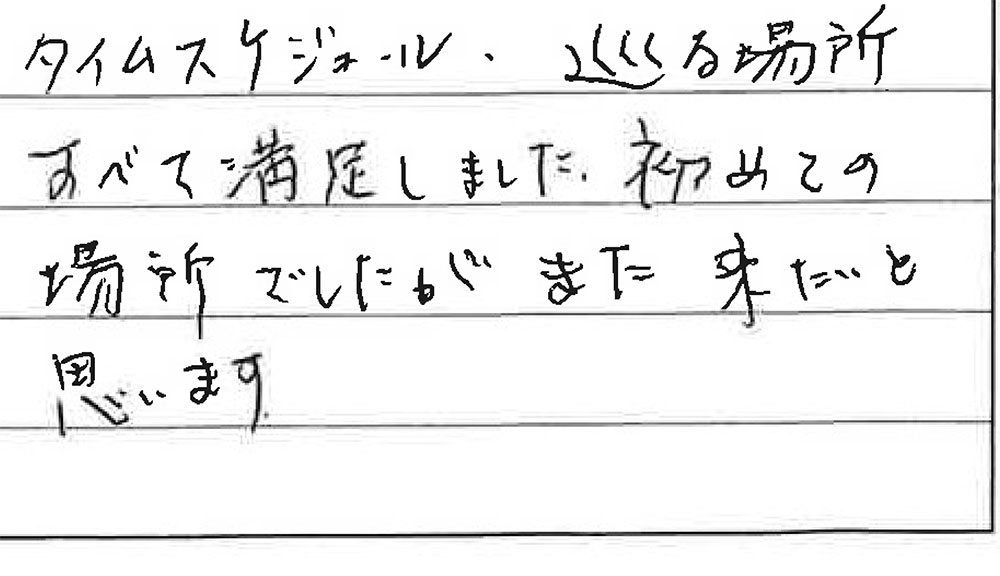 タイムスケジュール、巡る場所
すべて満足しました。初めての
場所でしたがまた来たいと
思います